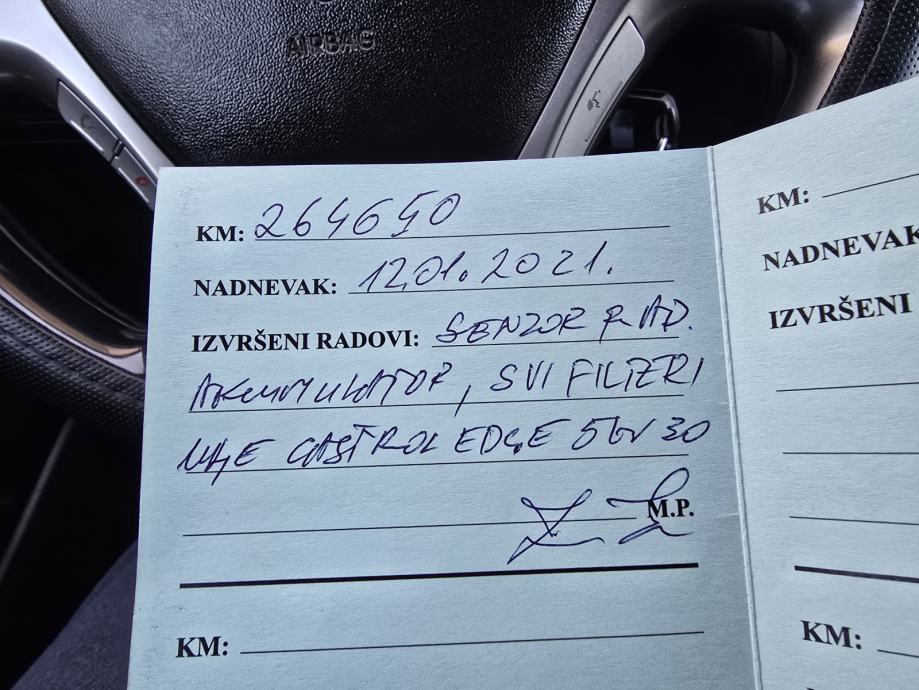 AIRBAG
KM: 264650
NADNEVAK: 12.01.2021.
IZVRŠENI RADOVI: SENZOR RAD.
AKUMULATOR, SVI FILTERI
ULJE CASTROL EDGE 5W30
M.P.
KM:
KM:
NADNEVAK
IZVRŠENI
KM: